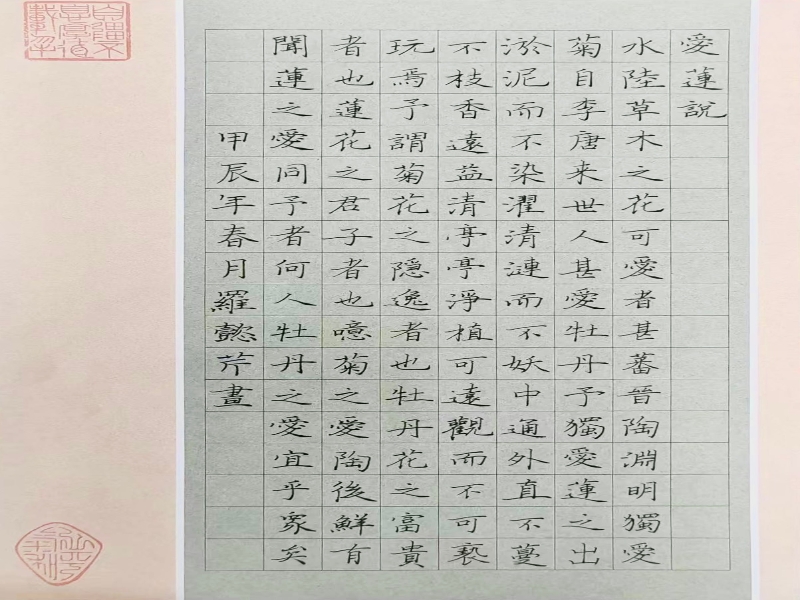 愛蓮說
水陸草木之花可愛者甚蕃晉陶淵明獨愛
菊自李唐来世人甚愛牡丹予獨愛蓮之出
淤泥而不染濯清漣而不妖中通外直不蔓
不枝香遠益清亭亭淨植可遠觀而不可褻
玩焉予謂菊花之隱逸者也牡丹花之富貴
者也蓮花之君子者也噫菊之愛陶後鮮有
聞蓮之愛同予者何人牡丹之愛宜乎眾矣
甲辰年春月羅懿芹畫